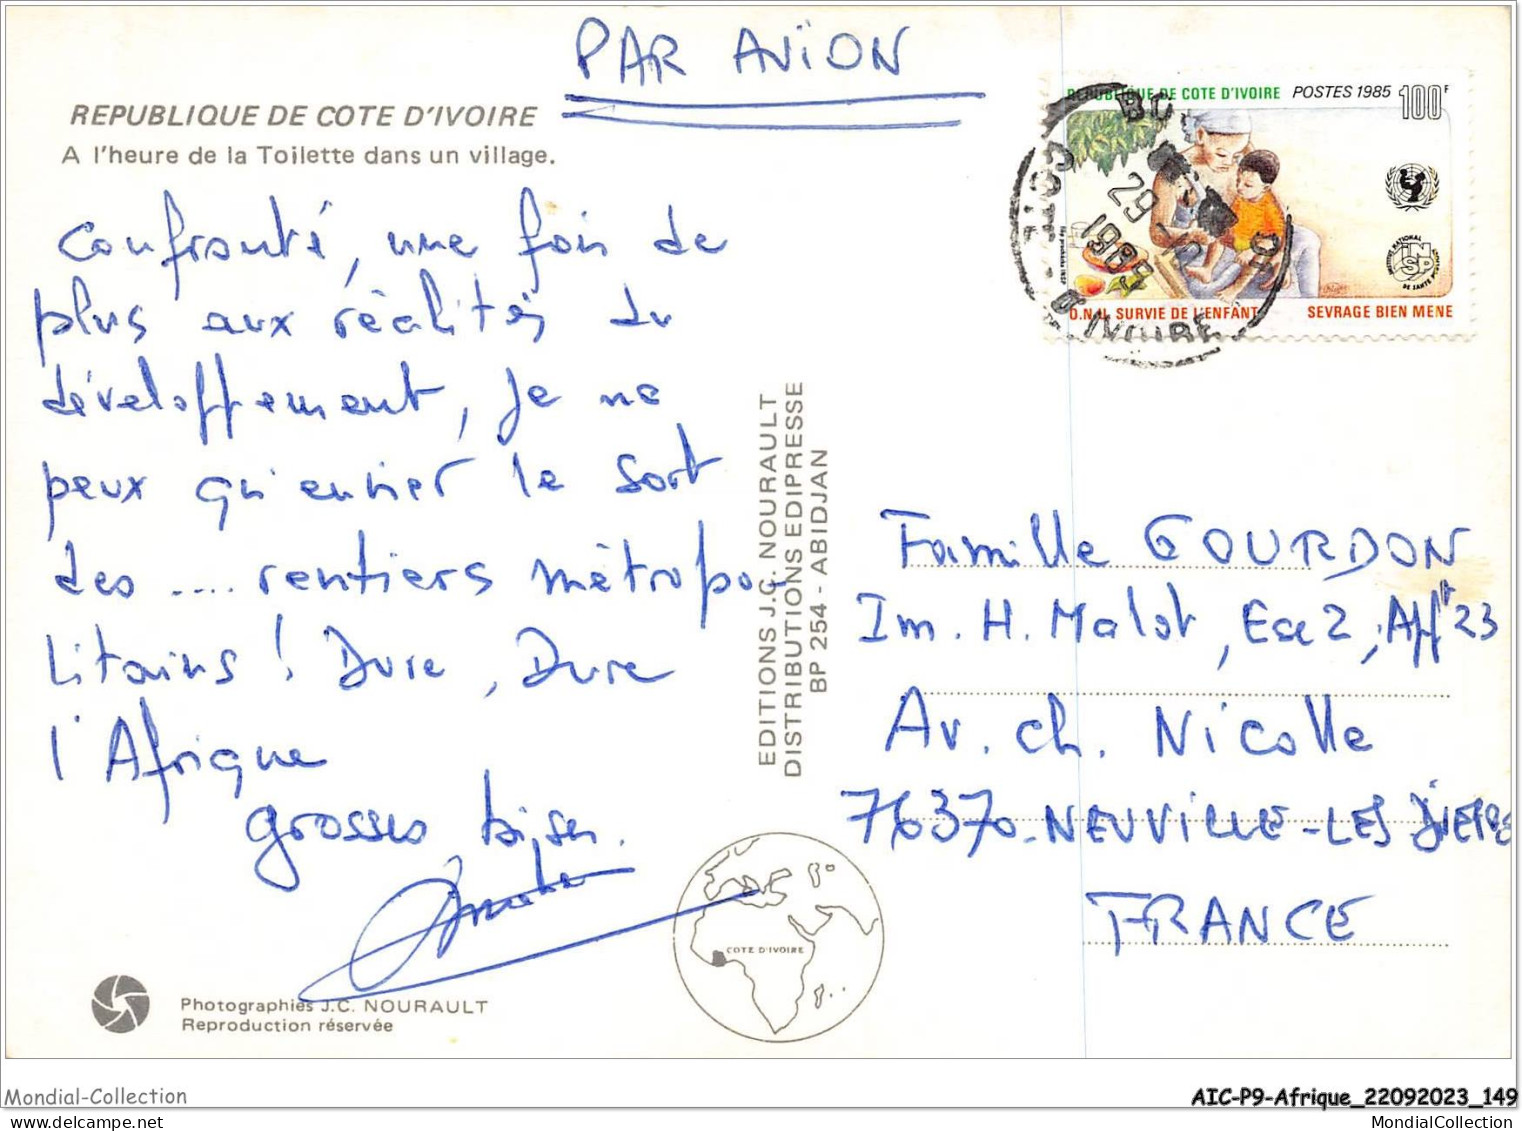 PAR AVION
REPUBLIQUE DE COTE D'IVOIRE
A l'heure de la Toilette dans un village.
Confronté, une fois de
plus aux réalités du
développement, je ne
peux qu'envier le sort
des .... rentiers métropo-
litains ! Dure, Dure
l'Afrique
grosses bises.
EDITIONS J.C. NOURAULT
DISTRIBUTIONS EDIPRESSE
BP 254 - ABIDJAN
REPUBLIQUE DE COTE D'IVOIRE POSTES 1985 100F
INSTITUT NATIONAL
INSP
DE SANTE PUBLIQUE
O.N.U. SURVIE DE L'ENFANT SEVRAGE BIEN MENE
29
1985
COTE D'IVOIRE
Famille GOURDON
Im. H. Malot, Esc 2, Appt 23
Av. ch. Nicolle
76370 - NEUVILLE-LES DIEPPE
FRANCE
COTE D'IVOIRE
Photographies J.C. NOURAULT
Reproduction réservée
Mondial-Collection
AIC-P9-Afrique_22092023_149
MondialCollection